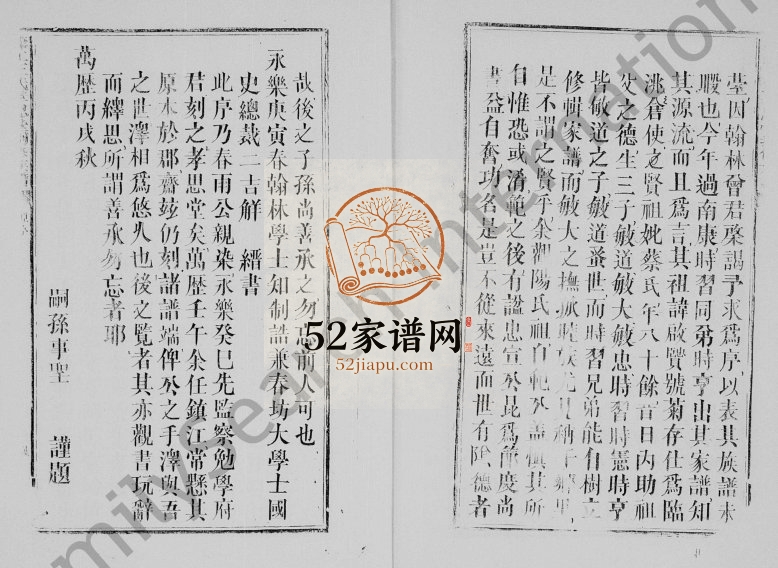 塋因翰林曾君棨謁予求爲序以表其族譜未
暇也今年過南康時習同弟時亨出其家譜知
其源流而且爲言其祖諱啟賢號菊存仕爲臨
洮倉使之賢祖妣蔡氏年八十餘昔日內助祖
父之德生三子敏道敏大敏忠時習時憲時亨
皆敏道之子敏道蚤世而時習兄弟能有樹立
修輯家譜而敏大之撫
是不謂之賢乎余觀陽氏祖自
自惟恐或淆範之後有諡忠宣 爲 慶尚
書益自奮功名是豈不從來遠而世有陰德者
哉後之子孫尚善承之勿忘前人可也
永樂庚寅春翰林學士知制誥兼春坊大學士國
史總裁二吉解 縉書
此序乃春雨公親染永樂癸巳先監察勉學府
君刻之孝思堂矣萬歷壬午余任鎮江常懸其
原本於郡齋茲仍刻諸譜端俾公之手澤與吾
之世澤相爲悠久也後之覽者其亦觀書玩辭
而繹思所謂善承勿忘者耶
萬歷丙戌秋
嗣孫事聖 謹題
52家谱网
52jiapu.com
FamilySearch International